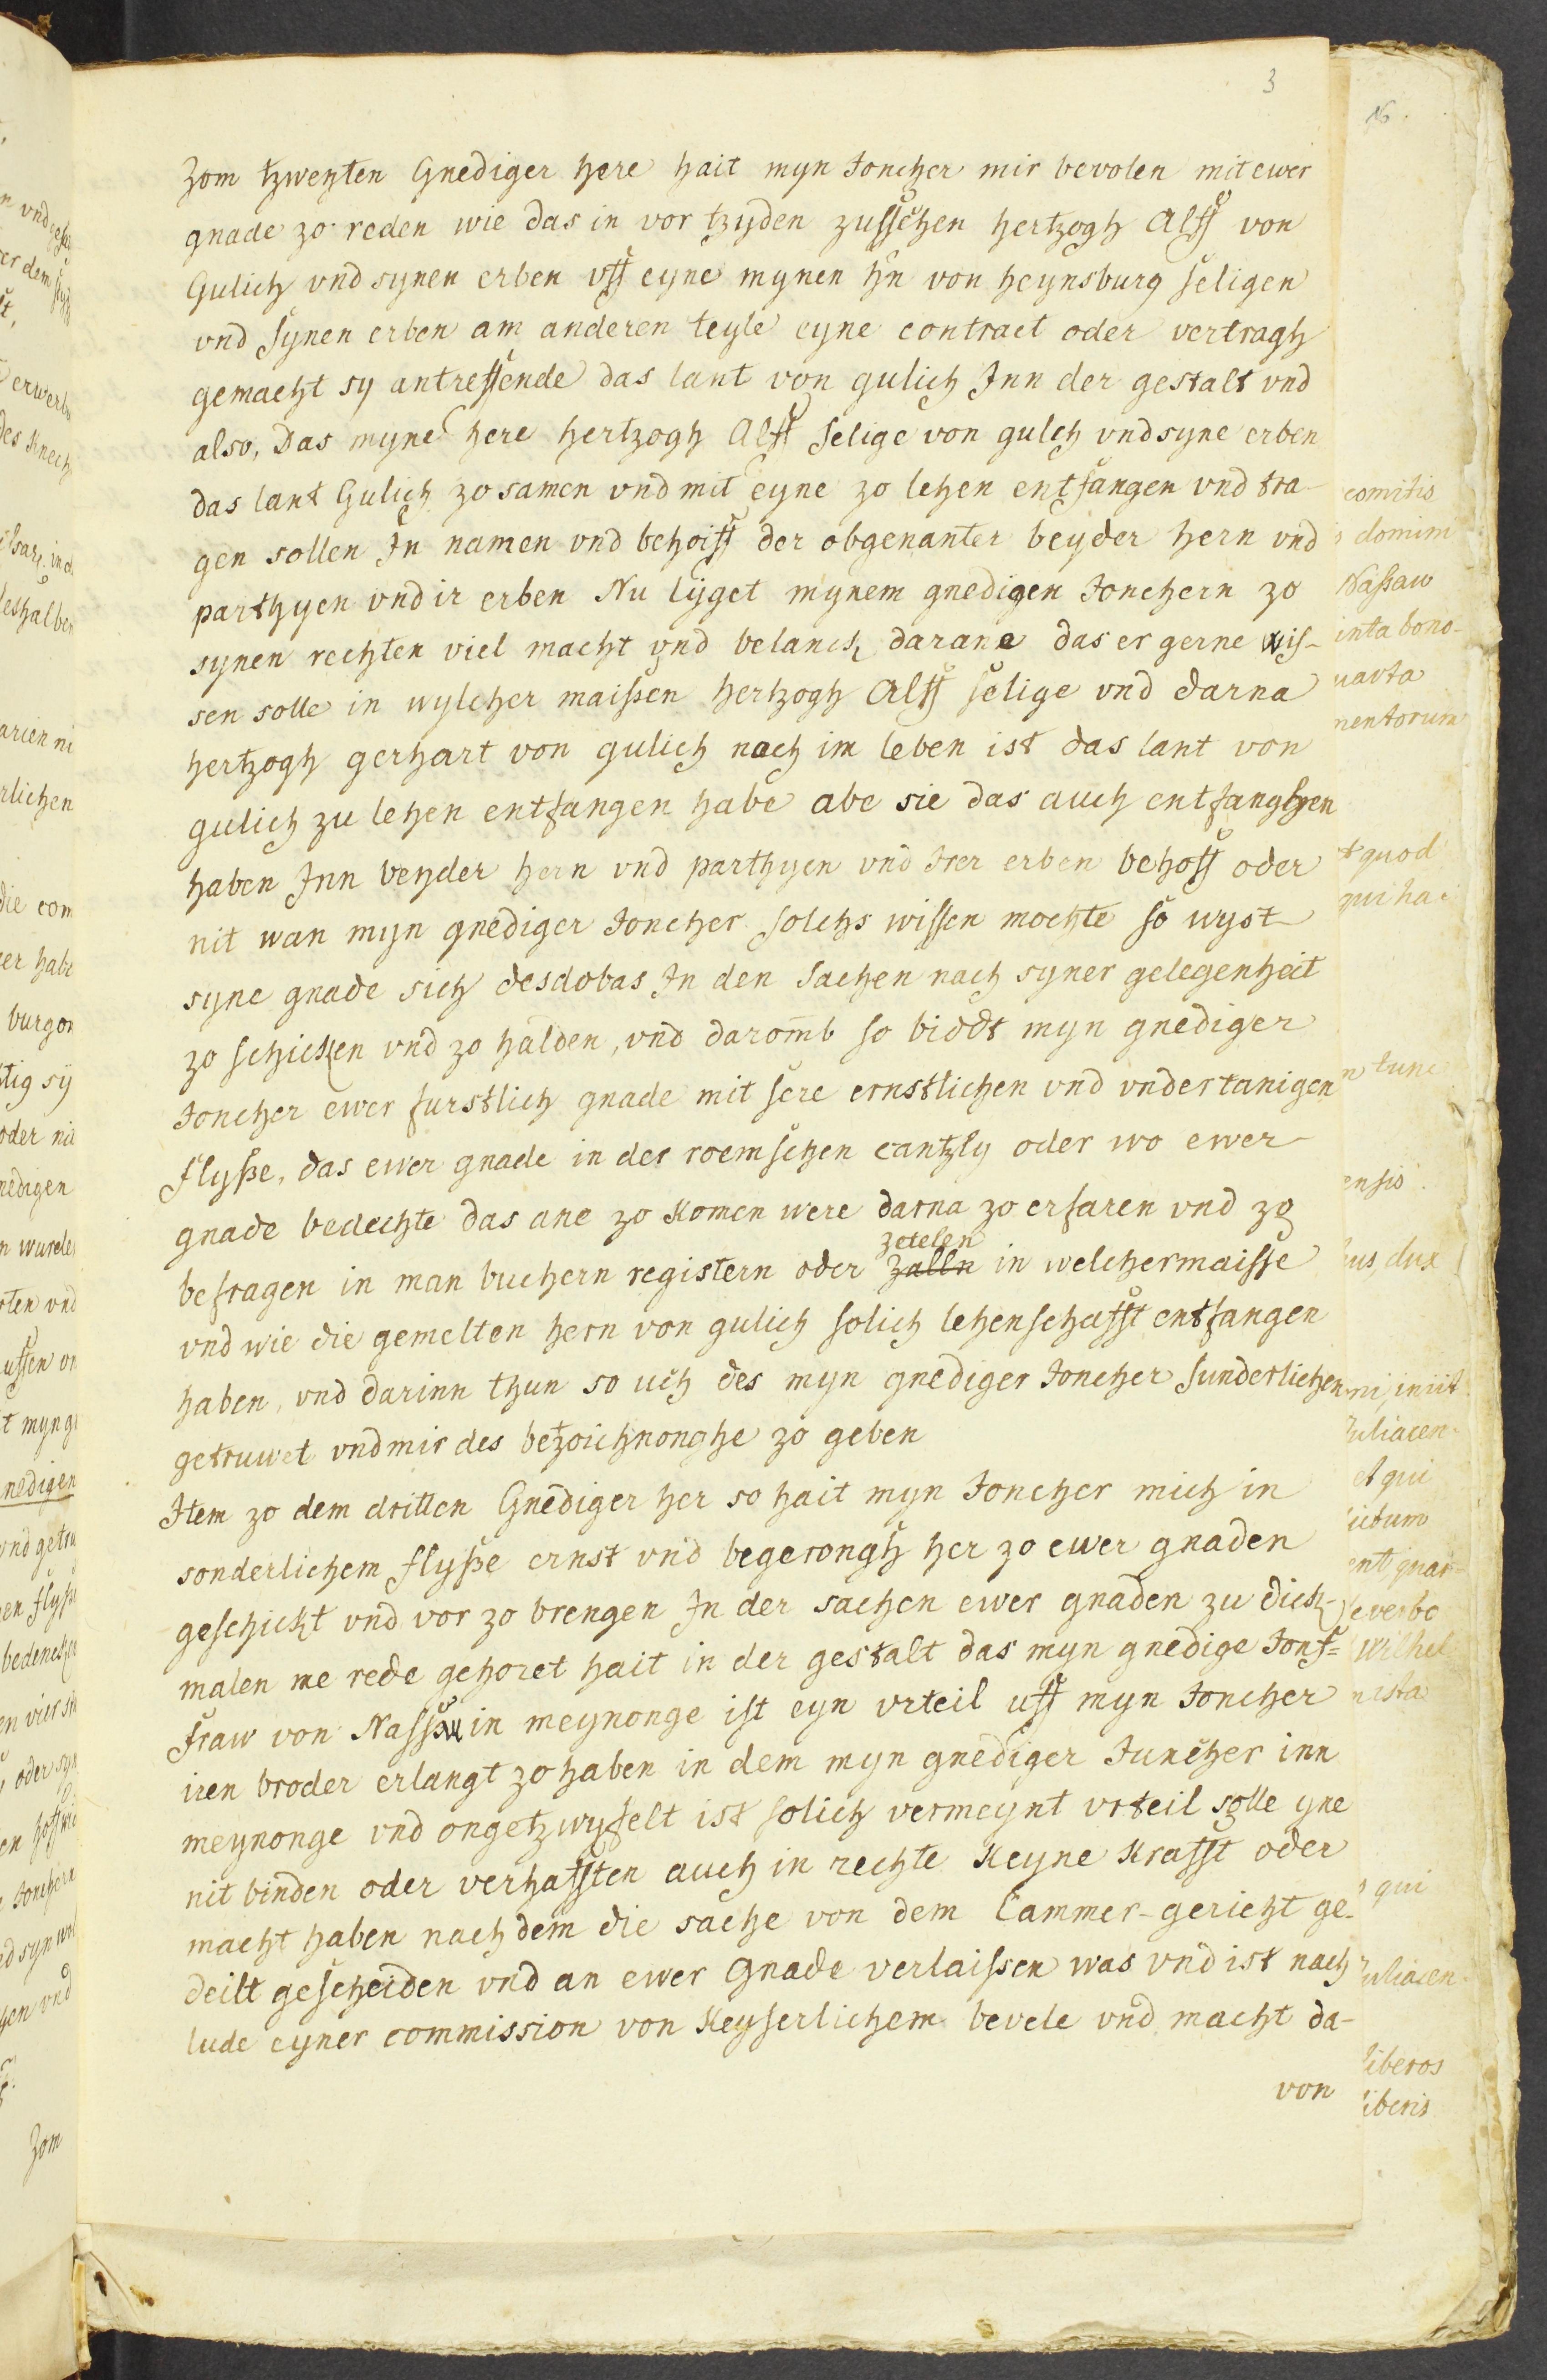 3
Zom tzweyten Gnediger here hait myn Joncher mir bevolen mit ewer
gnade zo reden wie das in vor tzyden zusschen hertzogh Alff von
Gulich vnd synen erben vff eyne mynen hn von heynsburg seligen
vnd synen erben am anderen teyle eyne contract oder vertragh
gemacht sy antreffende das lant von gulich Inn der gestalt vnd
also, Das myne here hertzogh Alff selige von gulch vnd syne erben
das lant Gulich zo samen vnd mit eyne zo lehen entfangen vnd tra-
gen sollen In namen vnd behoiff der obgenanter beyder hern vnd
parthyen vnd ir erben Nu lyget mynem gnedigen Jonchern zo
synen rechten viel macht vnd belanch darane das er gerne wis-
sen solle in wylcher maissen hertzogh Alff selige vnd darna
hertzogh gerhart von gulich noch im leben ist das lant von
gulich zu lehen entfangen habe abe sie das auch entfanghen
haben Inn beyder hern vnd parthyen vnd Irer erben behoff oder
nit wan myn gnediger Joncher solchs wissen mochte so wyst
syne gnade sich desdobas In den sachen nach syner gelegenheit
zo schicken vnd zo halden, vnd daromb so biddt myn gnediger
Joncher ewer furstlich gnade mit sere ernstlichen vnd vndertanigen
flyße, das ewer gnade in der roemschen cantzly oder wo ewer
gnade bedechte das ane zo komen were darna zo erfaren vnd zo
zetelen
befragen in man buchern registern oder zalln in welchermaisse
vnd wie die gemelten hern von gulich solich lehenschafft entfangen
haben, vnd darinn thun so uch des myn gnediger Joncher sunderlichen
getruwet vnd mir des betzoichnonghe zo geben
Item zo dem dritten Gnediger her so hait myn Joncher mich in
sonderlichem flyße ernst vnd begerongh her zo ewer gnaden
geschickt vnd vor zo brengen In der sachen ewer gnaden zu dick-
malen me rede gehoret hait in der gestalt das myn gnedige Jonf=
fraw von Nassaw in meynonge ist eyn vrteil uff myn Joncher
iren broder erlangt zo haben in dem myn gnediger Juncher inn
meynonge vnd ongetzwyfelt ist solich vermeynt vrteil solle yne
nit binden oder verhafften auch in rechte keyne krafft oder
macht haben nach dem die sache von dem Cammer-gericht ge-
deilt gescheiden vnd an ewer Gnade verlaissen was vnd ist nach
lude eyner commission von Keyserlichem bevele vnd macht da-
von
16.
comitis
domini
Naßaw
inta bono-
uarta
mentorum
quod
qui ha-
tunc
ensis
dux
iniit
Juliacen-
et qui
verbo
Wilhel
qui
Juliacen-
liberos
liberis
Zom